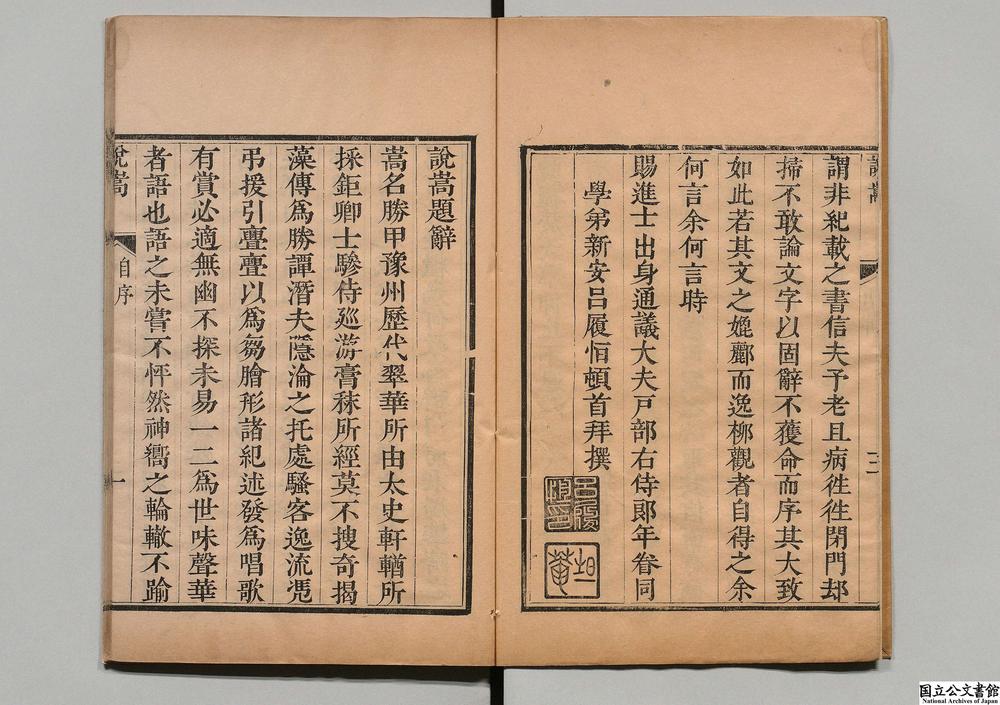 謂非紀載之書信夫予老且病徃徃閉門却
掃不敢論文字以固辭不獲命而序其大致
如此若其文之嫓酈而逸柳觀者自得之余
何言余何言時
賜進士出身通議大夫戸部右侍郎年眷同
學弟新安呂履恒頓首拜撰
呂履恒印
坦菴
說嵩
說嵩題辭
嵩名勝甲豫州歷代翠華所由太史軒輶所
採鉅卿士驂侍廵游膏秣所經莫不搜奇揭
藻傳爲勝譚潛夫隱淪之托處騷客逸流凭
弔援引亹亹以爲芻膾形諸紀述發爲唱歌
有賞必適無幽不探未易一二爲世味聲華
者語也語之未嘗不怦然神嚮之輪轍不踰
說嵩
自序
一
国立公文書館
National Archives of Japan